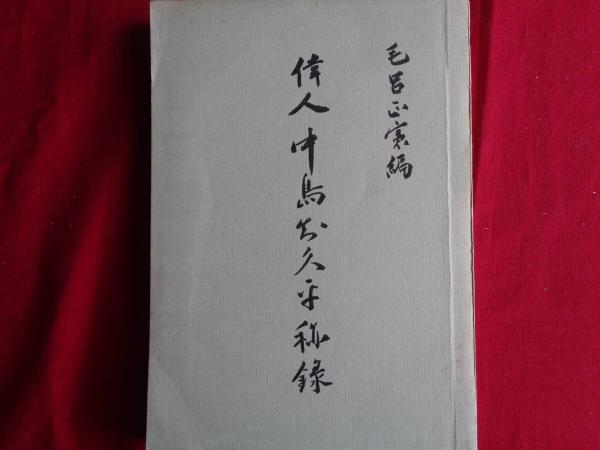 毛呂正憲編
偉人中島知久平秘録